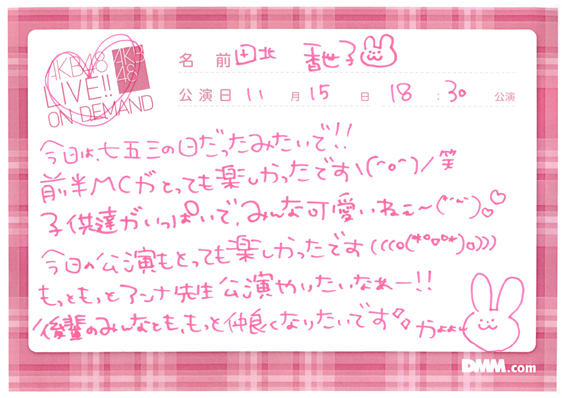 AKB48
LIVE!!
ON DEMAND
AKB
48
名 前 田北 香世子
公演日 11 月 15 日 18 : 30 公演
今日は、七五三の日だったみたいで!!
前半MCがとっても楽しかったですヽ(^o^)ノ笑
子供達がいっぱいで、みんな可愛いねぇ〜(^-^)♡♡
今日の公演もとっても楽しかったです(((o(*゚▽゚*)o)))
もっともっとアンナ先生公演やりたいなぁー!!
後輩のみんなとも、もっと仲良くなりたいです
DMM.com